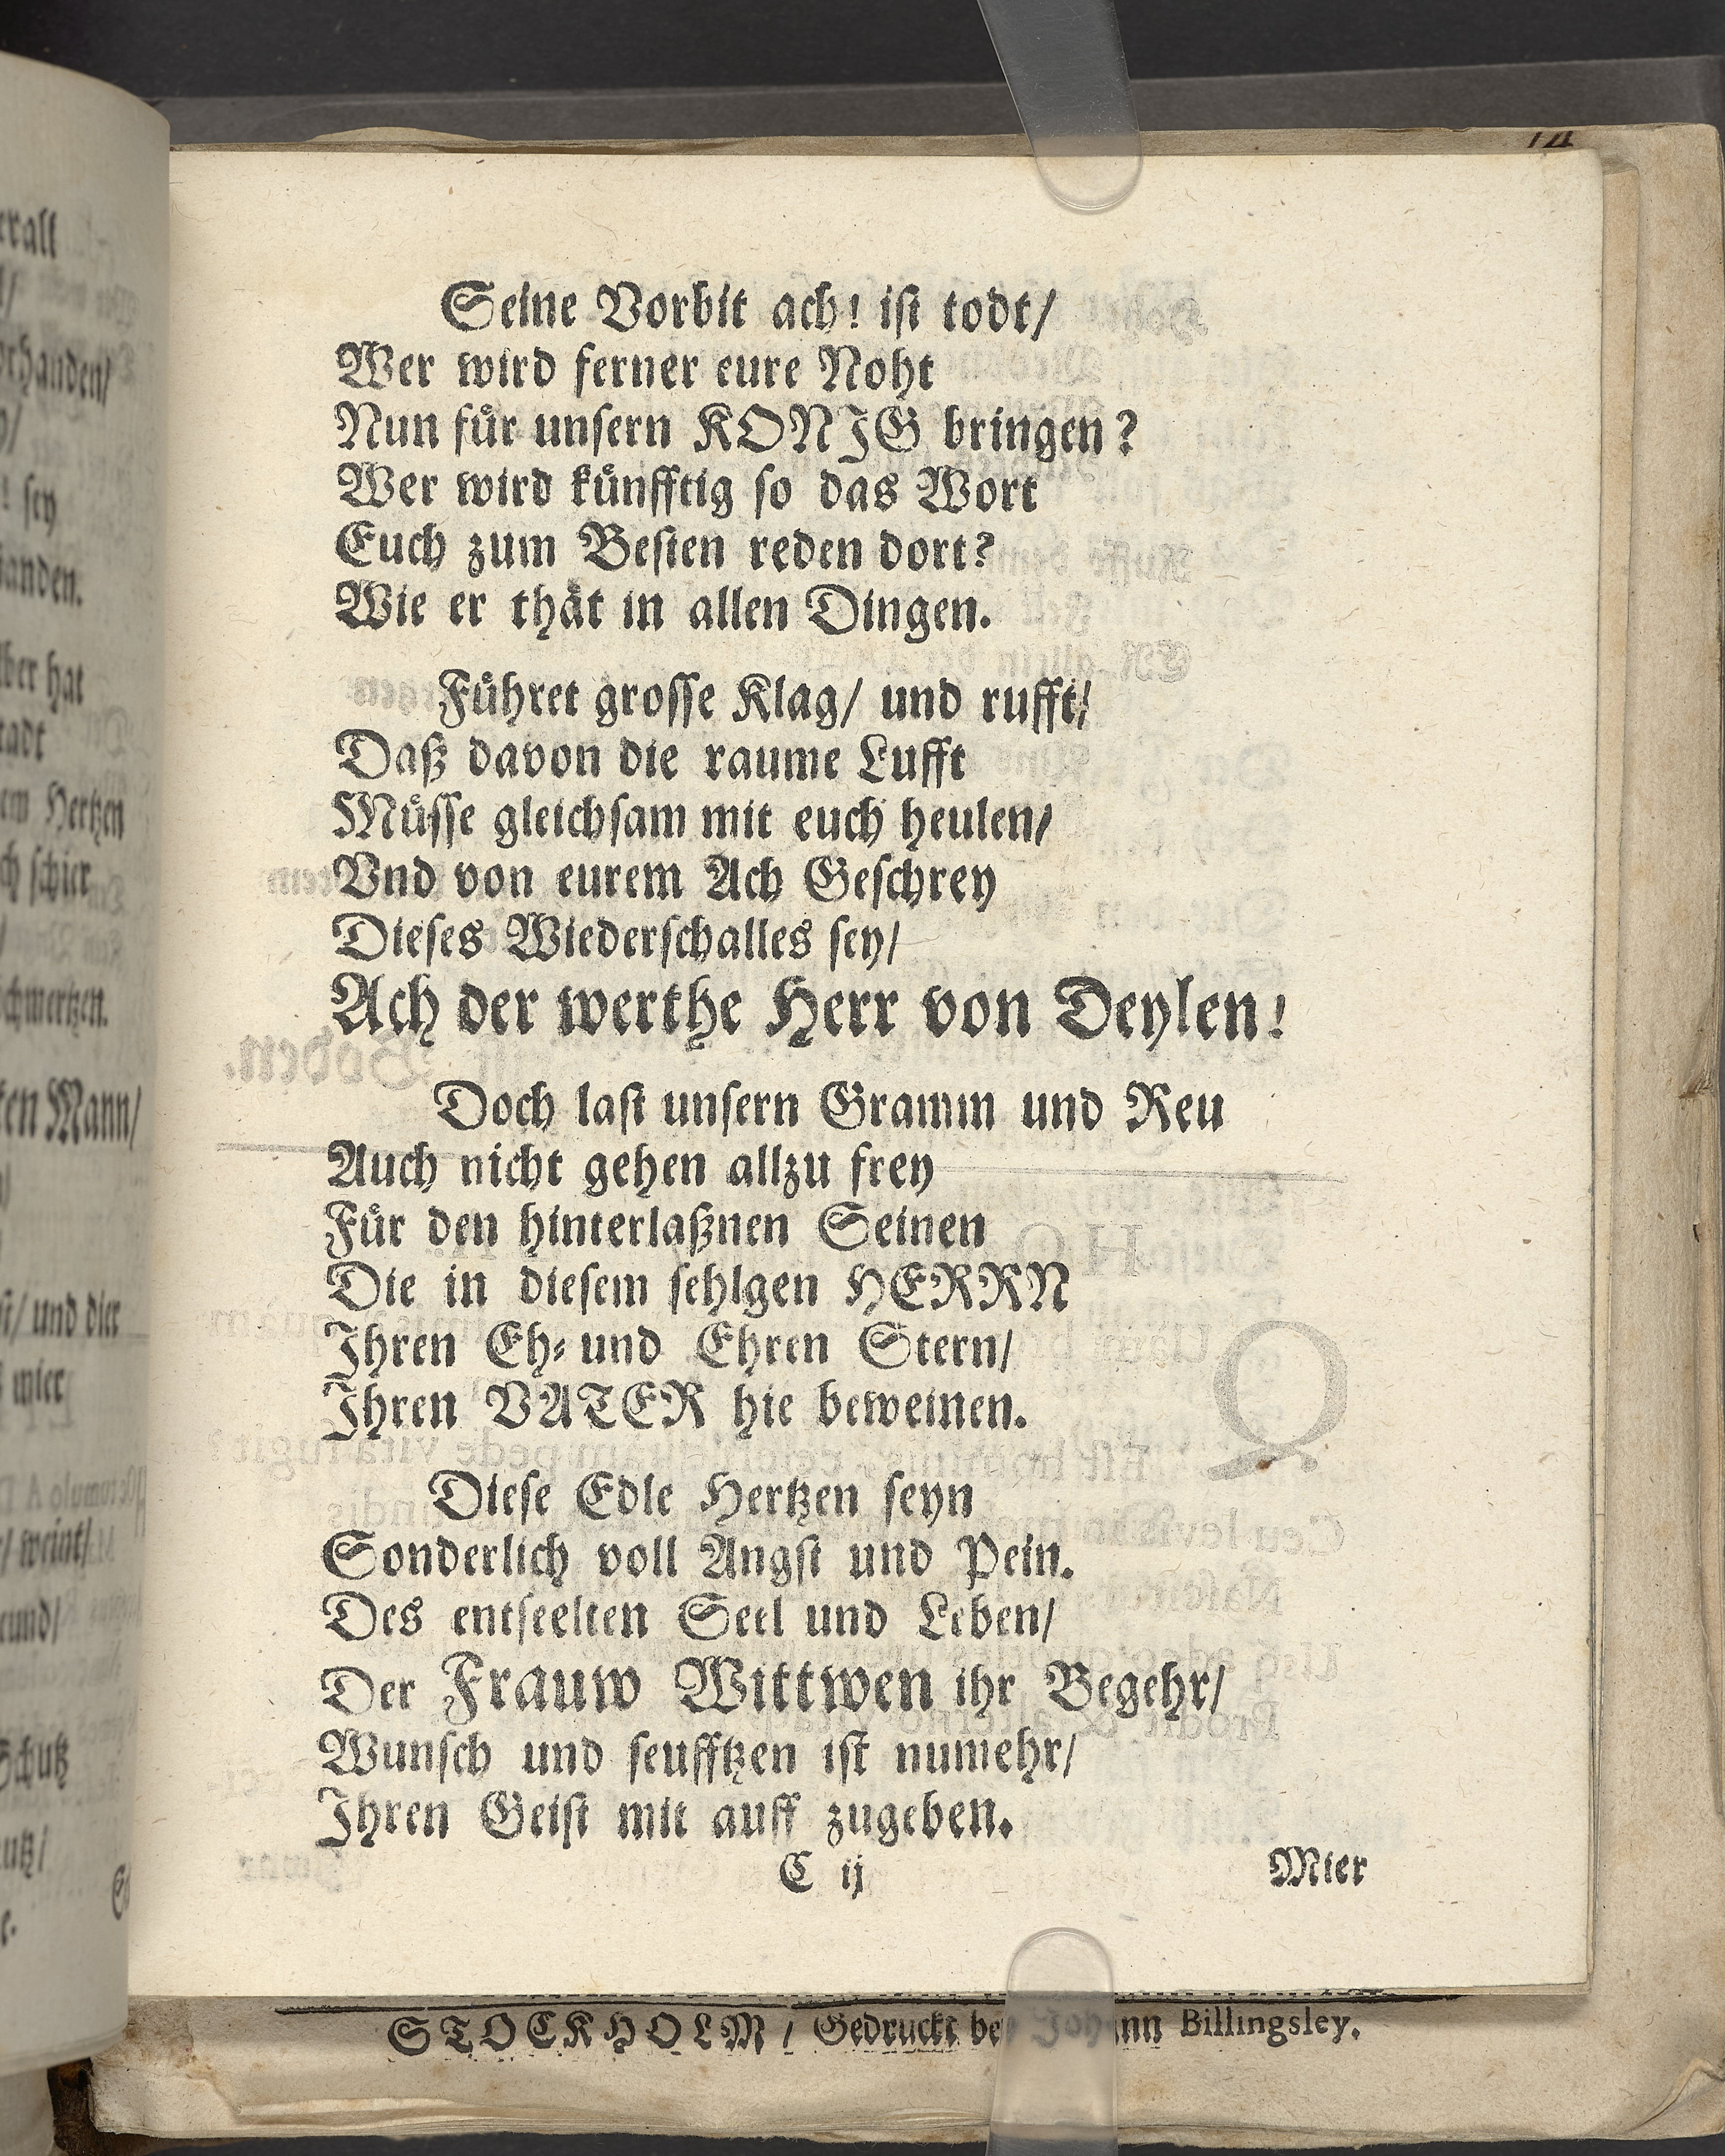 Seine Vorbit ach! ist todt/
Wer wird ferner eure Noht
Nun für unsern KONIG bringen?
Wer wird künfftig so das Wort
Euch zum Besten reden dort?
Wie er thät in allen Dingen.
Führet grosse Klag/ und rufft/
Daß davon die raume Lufft
Müsse gleichsam mit euch heulen/
Vnd von eurem Ach Geschrey
Dieses Wiederschalles sey/
Ach der werthe Herr von Deylen!
Doch last unsern Gramm und Reu
Auch nicht gehen allzu frey
Für den hinterlaßnen Seinen
Die in diesem sehlgen HERRN
Ihren Eh- und Ehren Stern/
Ihren VATER hie beweinen.
Diese Edle Hertzen seyn
Sonderlich voll Angst und Pein.
Des entseelten Seel und Leben/
Der Frauw Wittwen ihr Begehr/
Wunsch und seufftzen ist numehr/
Ihren Geist mit auff zugeben.
C ij
Mier
STOCKHOLM/ Gedruckt bey Johann Billingsley.
erall
orhanden/
! sey
handen.
hat
Hertzen
schier
chwertzen.
Mann/
und dier
mier
weint/
Schutz